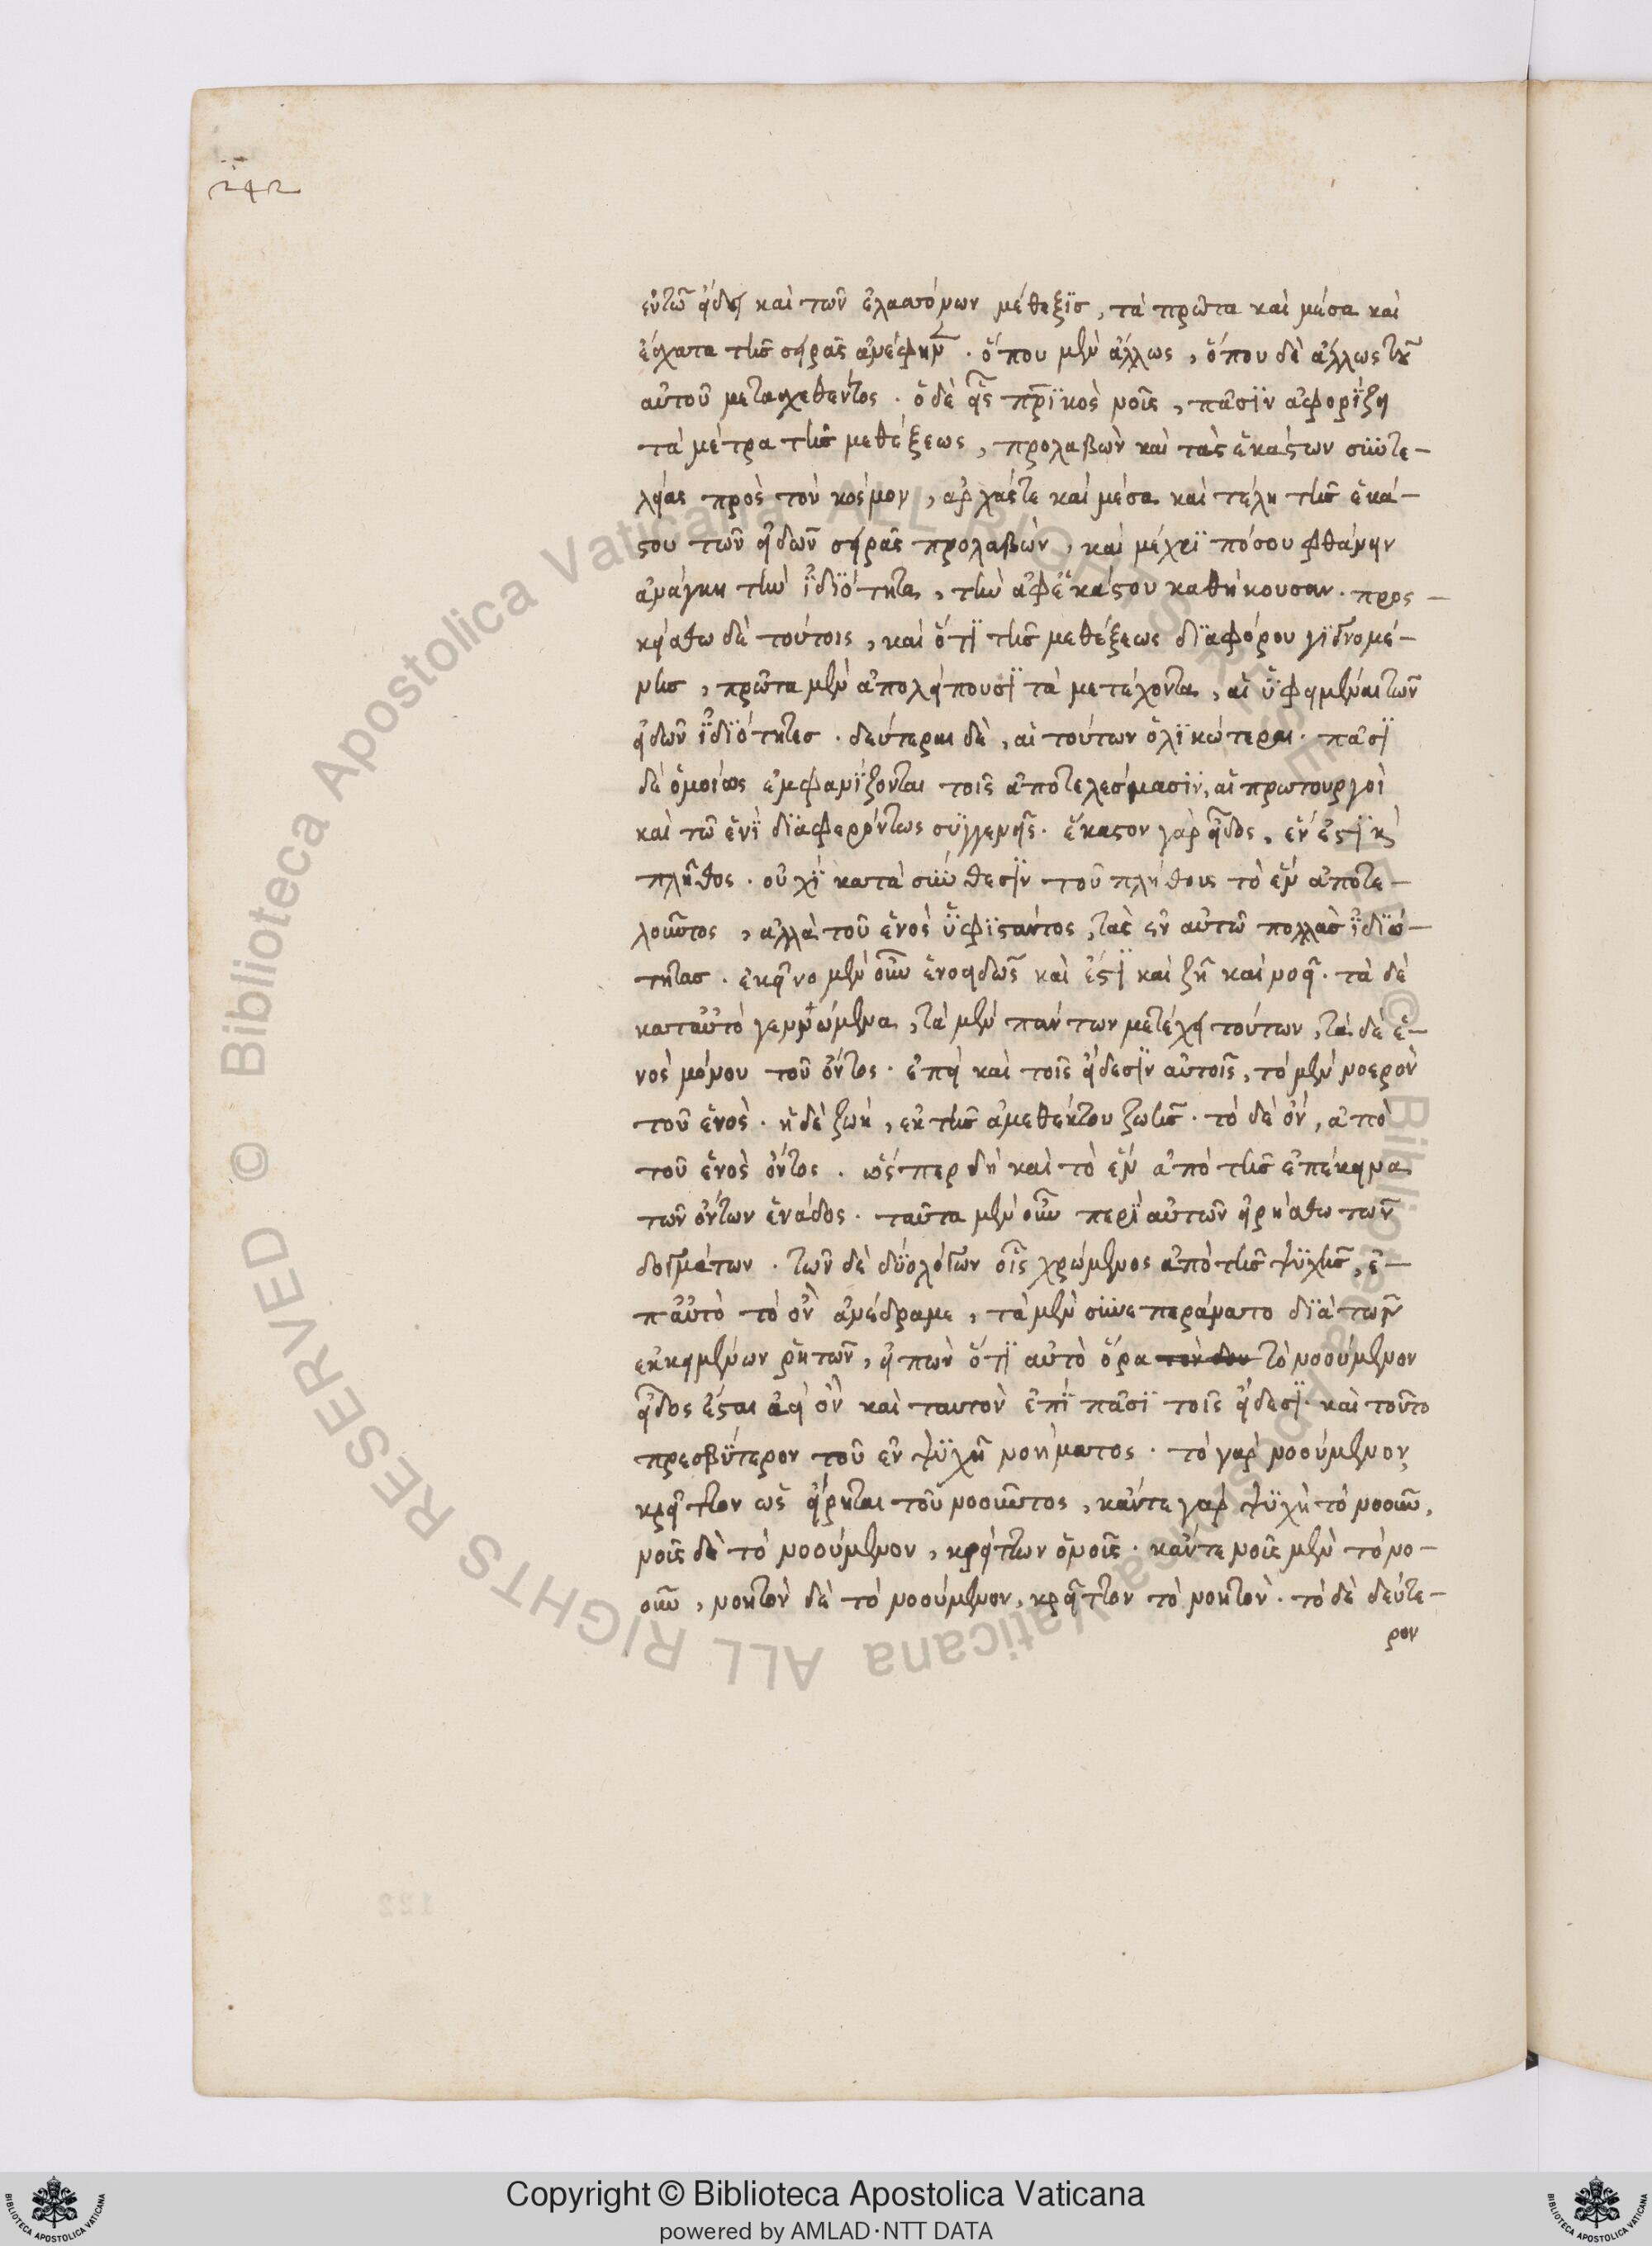 242
ἐν τῶ εἴδει καὶ τῶν ἐλλαμπομένων μέθεξϊσ, τὰ πρῶτα καὶ μέσα καὶ
ἔσχατα τῆσ σειρᾶς ἀνέφηνε. ὅπου μὲν ἄλλως, ὅπου δὲ ἄλλως τοῦ
αὐτοῦ μετασχεθέντος. ὁ δὲ εἷς πατρϊκὸς νοῦς, πᾶσϊν ἀφορΐζει
τὰ μέτρα τῆς μεθέξεως, προλαβὼν καὶ τὰς ἑκάστων συντε-
λείας πρὸς τὸν κόσμον, ἀρχάς τε καὶ μέσα καὶ τέλη τῆς ἑκά-
στου τῶν εἰδῶν σειρᾶς προλαβὼν, καὶ μέχρϊ πόσου φθάνειν
ἀνάγκη τὴν ἰδϊότητα, τὴν ἀφ' ἑκάστου καθήκουσαν. προς-
κείσθω δὲ τούτοις, καὶ ὅτϊ τῆς μεθέξεως δϊαφόρου γϊγνομέ-
νης, πρῶτα μὲν ἀπολείπουσϊ τὰ μετέχοντα, αἱ ὑφειμέναι τῶν
εἰδῶν ἰδϊότητεσ. δεύτεραι δὲ, αἱ τούτων ὁλϊκώτεραι. πᾶσϊ
δὲ ὁμοίως ἐμφανΐζονται τοῖς ἀποτελέσμασϊν, αἱ πρωτουργοὶ
καὶ τῶ ἑνὶ δϊαφερόντως συγγενεῖς. ἕκαστον γὰρ εἶδος, ἕν ἐστϊ κὶ
πλῆθος. οὐχϊ κατὰ σύνθεσϊν τοῦ πλήθους τὸ ἓν ἀποτε-
λοῦντος, ἀλλὰ τοῦ ἑνὸς ὑφϊστάντος, τὰς ἐν αὐτῶ πολλὰσ ἰδϊό-
τητασ. ἐκεῖνο μὲν οὖν ἑνοειδῶς καὶ ἔστϊ καὶ ζῆ καὶ νοεῖ. τὰ δὲ
κατ' αὐτὸ γεννώμενα, τὰ μὲν πάντων μετέχει τούτων, τὰ δὲ ἑ-
νὸς μόνου τοῦ ὄντος. ἐπεὶ καὶ τοῖς εἴδεσϊν αὐτοῖς, τὸ μὲν νοερὸν
τοῦ ἑνὸς. ἡ δὲ ζωὴ, ἐκ τῆς ἀμεθέκτου ζωῆς. τὸ δὲ ὂν, ἀπὸ
τοῦ ἑνὸς ὄντος. ὥσπερ δὴ καὶ τὸ ἓν ἀπὸ τῆς ἐπέκεινα
τῶν ὄντων ἑνάδος. ταῦτα μὲν οὖν περὶ αὐτῶν εἰρήσθω τῶν
δογμάτων. τῶν δὲ δύο λόγων οἷς χρώμενος ἀπὸ τῆς ψϋχῆς, ἐ-
π' αὐτὸ τὸ ὂν ἀνέδραμε, τὰ μὲν συνεπεράνατο δϊὰ τῶν
ἐκκειμένων ῥητῶν, εἰπὼν ὅτϊ αὐτὸ ὅρα τὸ νοούμενον
εἶδος ἔσται ἀεὶ ὂν καὶ ταυτὸν ἐπϊ πᾶσϊ τοῖς εἴδεσϊ. καὶ τοῦτο
πρεσβύτερον τοῦ ἐν ψϋχῆ νοήματος. τὸ γὰρ νοούμενον
κρεῖττον ὡς εἴρηται τοῦ νοοῦντος, κἄντε γὰρ ψϋχὴ τὸ νοοῦν,
νοῦς δὲ τὸ νοούμενον, κρείττων ὁ νοῦς. κἄντε νοῦς μὲν τὸ νο-
οῦν, νοητὸν δὲ τὸ νοούμενον, κρεῖττον τὸ νοητὸν. τὸ δὲ δεύτε-
ρον
122
Copyright © Biblioteca Apostolica Vaticana
powered by AMLAD·NTT DATA
© Biblioteca Apostolica Vaticana ALL RIGHTS RESERVED
© Biblioteca Apostolica Vaticana ALL RIGHTS RESERVED
BIBLIOTECA APOSTOLICA VATICANA
BIBLIOTECA APOSTOLICA VATICANA